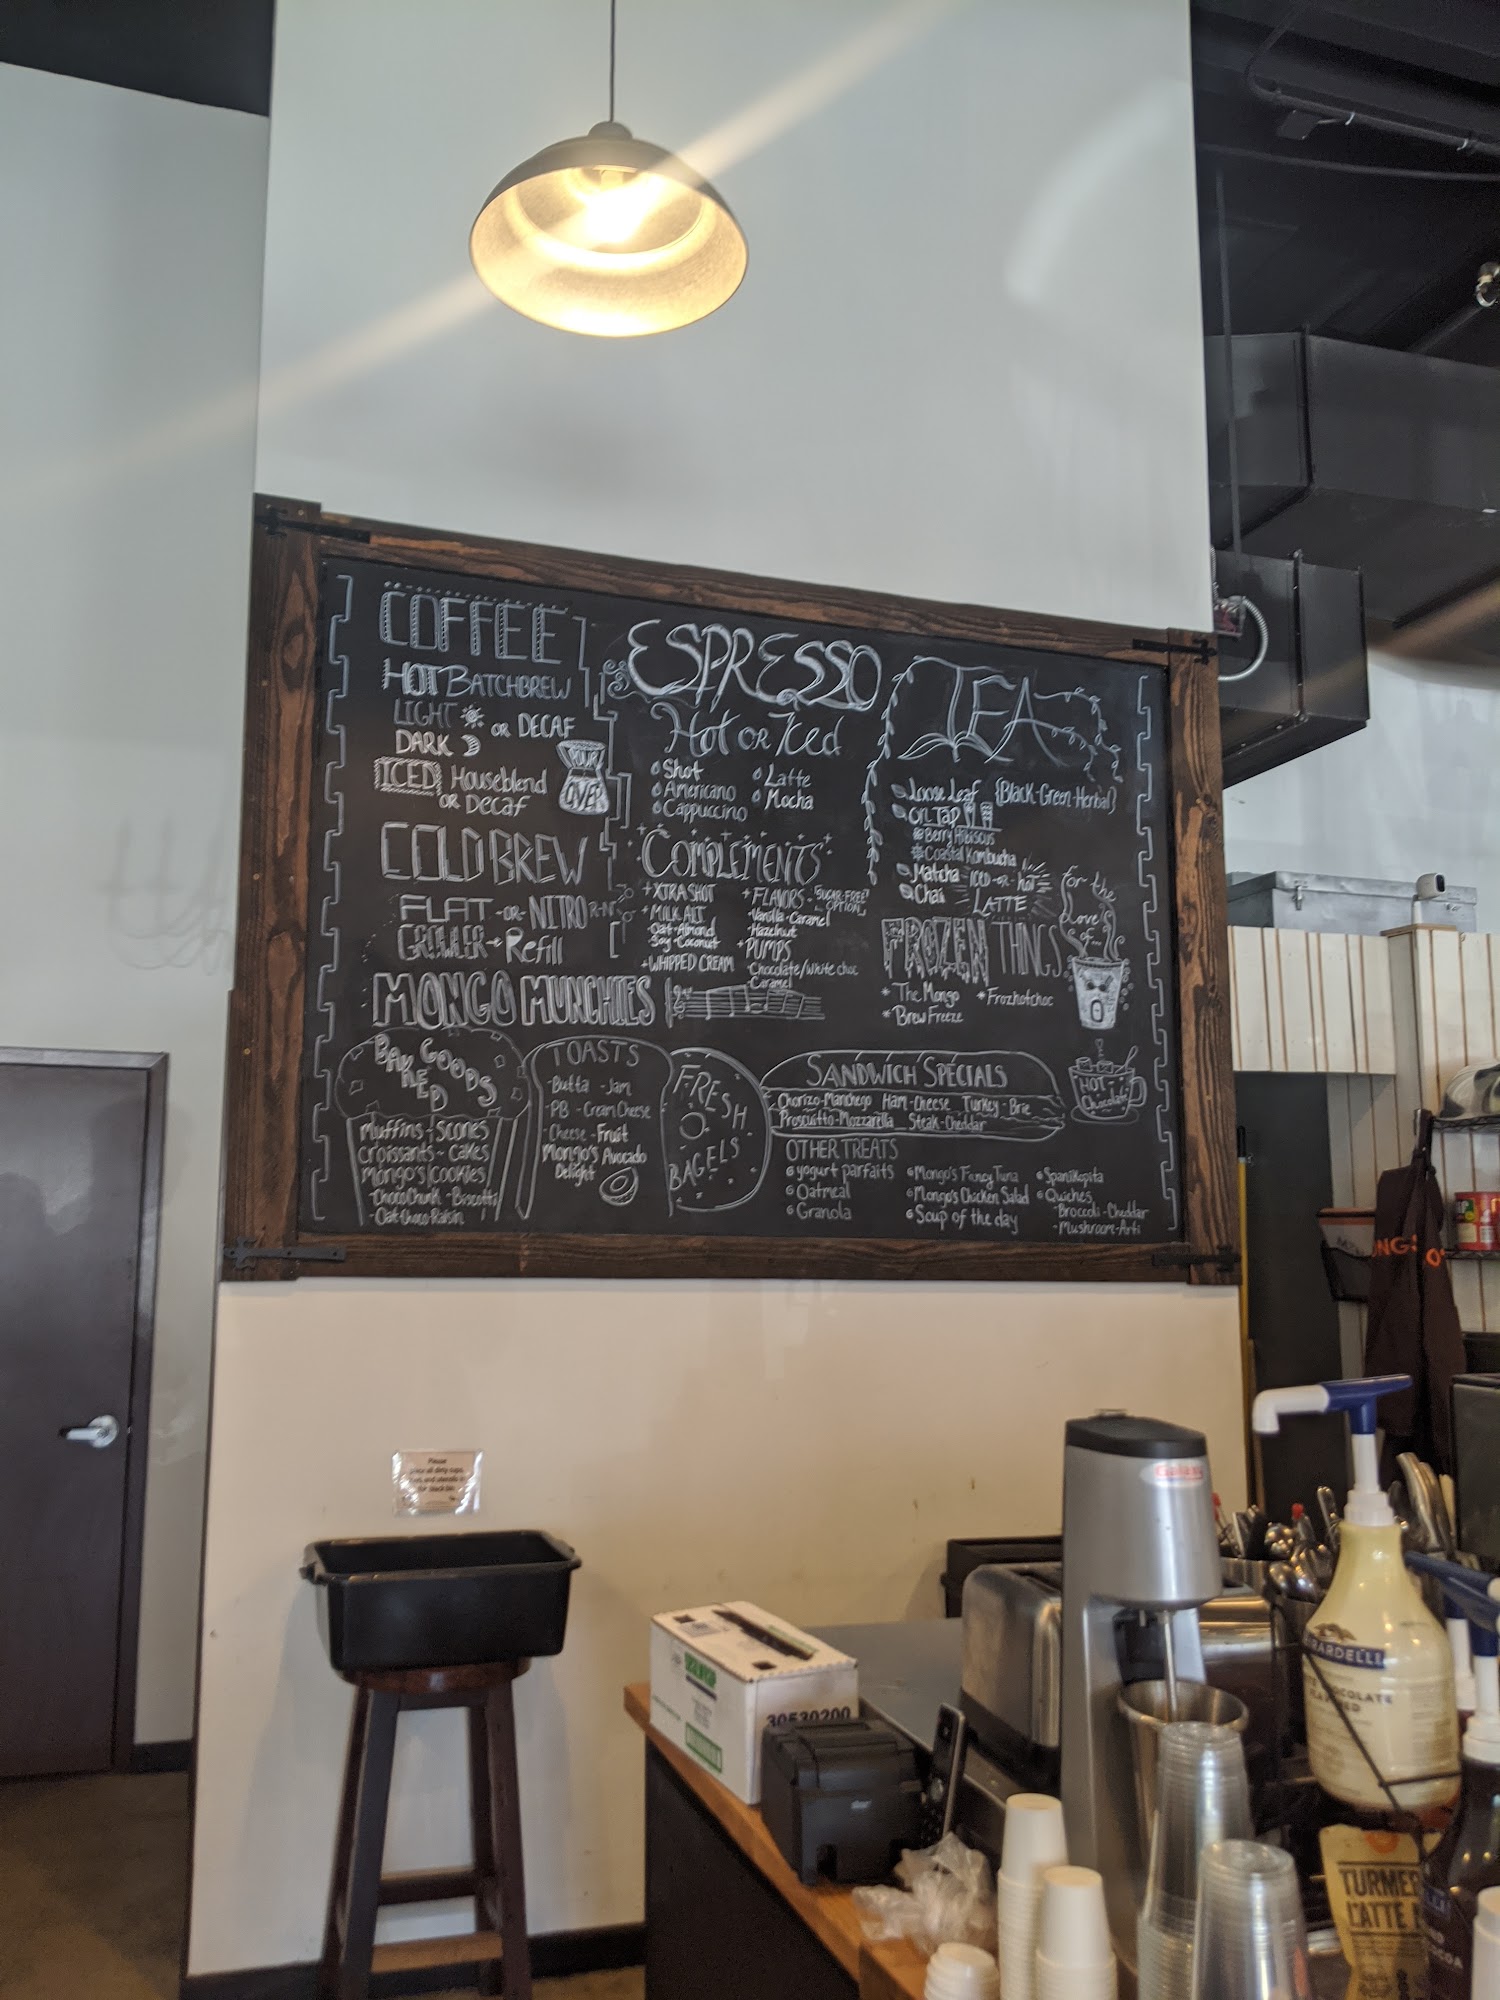 COFFEE
HOT BATCHBREW
LIGHT OR DECAF
DARK
ICED Houseblend
OR Decaf
POUR
OVER
COLD BREW
FLAT -OR- NITRO
GROWLER + Refill
ESPRESSO
Hot OR Iced
Shot
Americano
Cappuccino
Latte
Mocha
COMPLEMENTS
+ XTRA SHOT
+ MILK ALT
Oat-Almond
Soy-Coconut
+ WHIPPED CREAM
+ FLAVORS - "SUGAR-FREE"
OPTION
-Vanilla-Caramel
-Hazelnut
+ PUMPS
-Chocolate/White choc
-Caramel
TEA
Loose Leaf {Black-Green-Herbal}
On Tap
Berry Hibiscus
Coastal Kombucha
Matcha
Chai
ICED -or- hot
LATTE
FROZEN THINGS
* The Mongo
* Brew Freeze
* Frozhotchoc
For the
Love
of...
HOT
Chocolate
MONGO MUNCHIES
BAKED GOODS
Muffins - Scones
Croissants - Cakes
Mongo's Cookies
-ChocoChunk -Biscotti
-Oat-Choco-Raisin
TOASTS
-Butta -Jam
-PB -Cream Cheese
-Cheese -Fruit
Mongo's Avocado
Delight
FRESH
BAGELS
SANDWICH SPECIALS
Chorizo-Manchego Ham-Cheese Turkey-Brie
Prosciutto-Mozzarella Steak-Cheddar
OTHER TREATS
yogurt parfaits
Oatmeal
Granola
Mongo's Fancy Tuna
Mongo's Chicken Salad
Soup of the day
Spanikopita
Quiches
-Broccoli-Cheddar
-Mushroom-Arti
Please
30530200
star
Galaxy
GHIRARDELLI
CHOCOLATE
TURME
LATTE